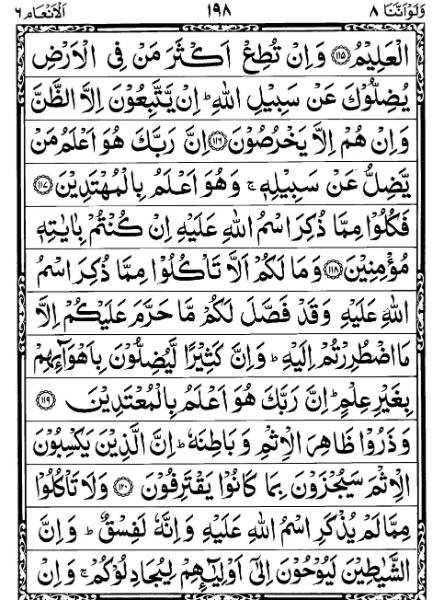 وَلَوْ اَنَّنَا ٨ ١٩٨ اَلْاَنْعَام ٦
الْعَلِيْمُ ﴿١١٥﴾ وَاِنْ تُطِعْ اَكْثَرَ مَنْ فِى الْاَرْضِ
يُضِلُّوْكَ عَنْ سَبِيْلِ اللهِ ؕ اِنْ يَّتَّبِعُوْنَ اِلَّا الظَّنَّ
وَاِنْ هُمْ اِلَّا يَخْرُصُوْنَ ﴿١١٦﴾ اِنَّ رَبَّكَ هُوَ اَعْلَمُ مَنْ
يَّضِلُّ عَنْ سَبِيْلِهٖ ۚ وَهُوَ اَعْلَمُ بِالْمُهْتَدِيْنَ ﴿١١٧﴾
فَكُلُوْا مِمَّا ذُكِرَ اسْمُ اللهِ عَلَيْهِ اِنْ كُنْتُمْ بِاٰيٰتِهٖ
مُؤْمِنِيْنَ ﴿١١٨﴾ وَمَا لَكُمْ اَلَّا تَاْكُلُوْا مِمَّا ذُكِرَ اسْمُ
اللهِ عَلَيْهِ وَقَدْ فَصَّلَ لَكُمْ مَّا حَرَّمَ عَلَيْكُمْ اِلَّا
مَا اضْطُرِرْتُمْ اِلَيْهِ ؕ وَاِنَّ كَثِيْرًا لَّيُضِلُّوْنَ بِاَهْوَآئِهِمْ
بِغَيْرِ عِلْمٍ ؕ اِنَّ رَبَّكَ هُوَ اَعْلَمُ بِالْمُعْتَدِيْنَ ﴿١١٩﴾
وَذَرُوْا ظَاهِرَ الْاِثْمِ وَبَاطِنَهٗ ؕ اِنَّ الَّذِيْنَ يَكْسِبُوْنَ
الْاِثْمَ سَيُجْزَوْنَ بِمَا كَانُوْا يَقْتَرِفُوْنَ ﴿١٢٠﴾ وَلَا تَاْكُلُوْا
مِمَّا لَمْ يُذْكَرِ اسْمُ اللهِ عَلَيْهِ وَاِنَّهٗ لَفِسْقٌ ؕ وَاِنَّ
الشَّيٰطِيْنَ لَيُوْحُوْنَ اِلٰٓى اَوْلِيٰٓئِهِمْ لِيُجَادِلُوْكُمْ ۚ وَاِنْ